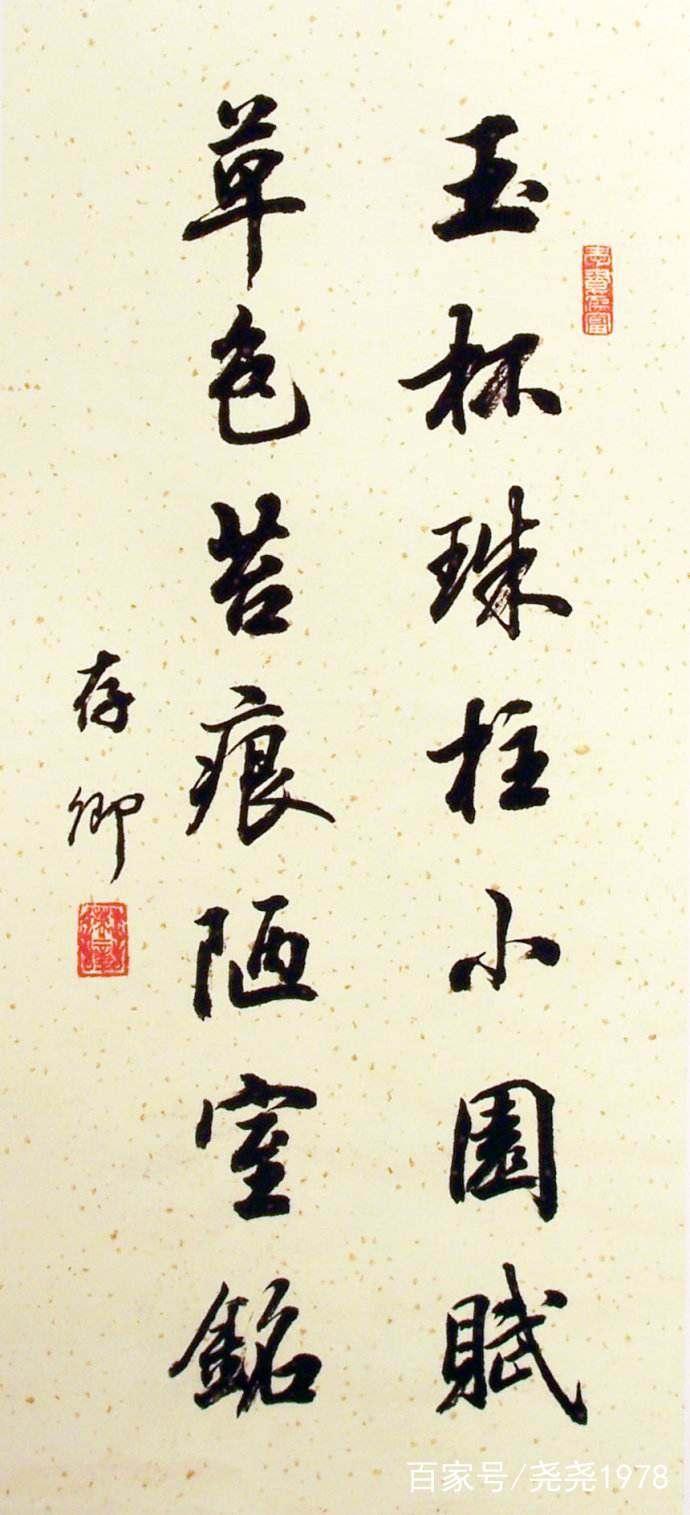 玉杯珠柱小園賦
草色苔痕陋室銘
存卿
百家号/尧尧1978